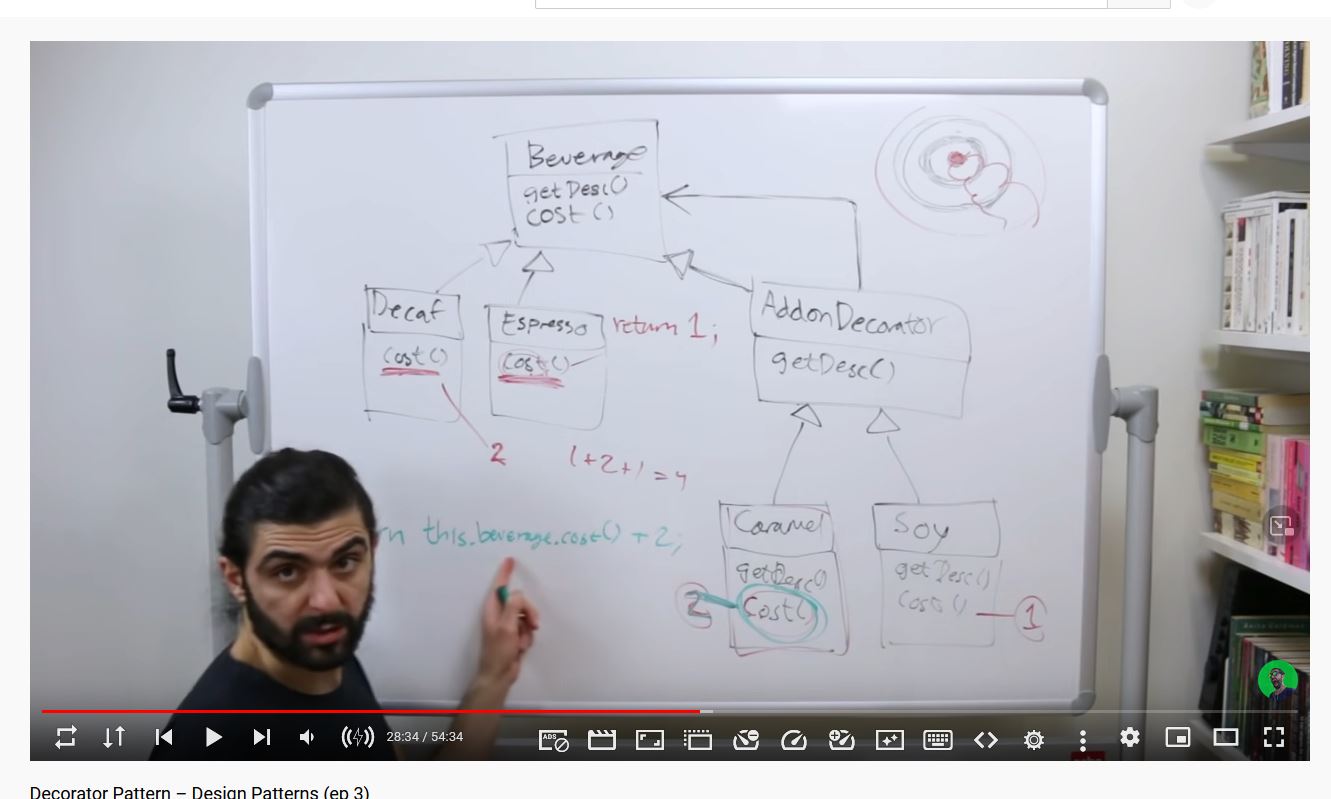 Beverage
getDesc()
cost()
Decaf
cost()
Espresso
cost()
return 1;
AddonDecorator
getDesc()
2
1+2+1=4
rn this.beverage.cost() + 2;
Caramel
getDesc()
cost()
2
Soy
getDesc()
cost()
1
28:34 / 54:34
ADS
Decorator Pattern – Design Patterns (ep 3)